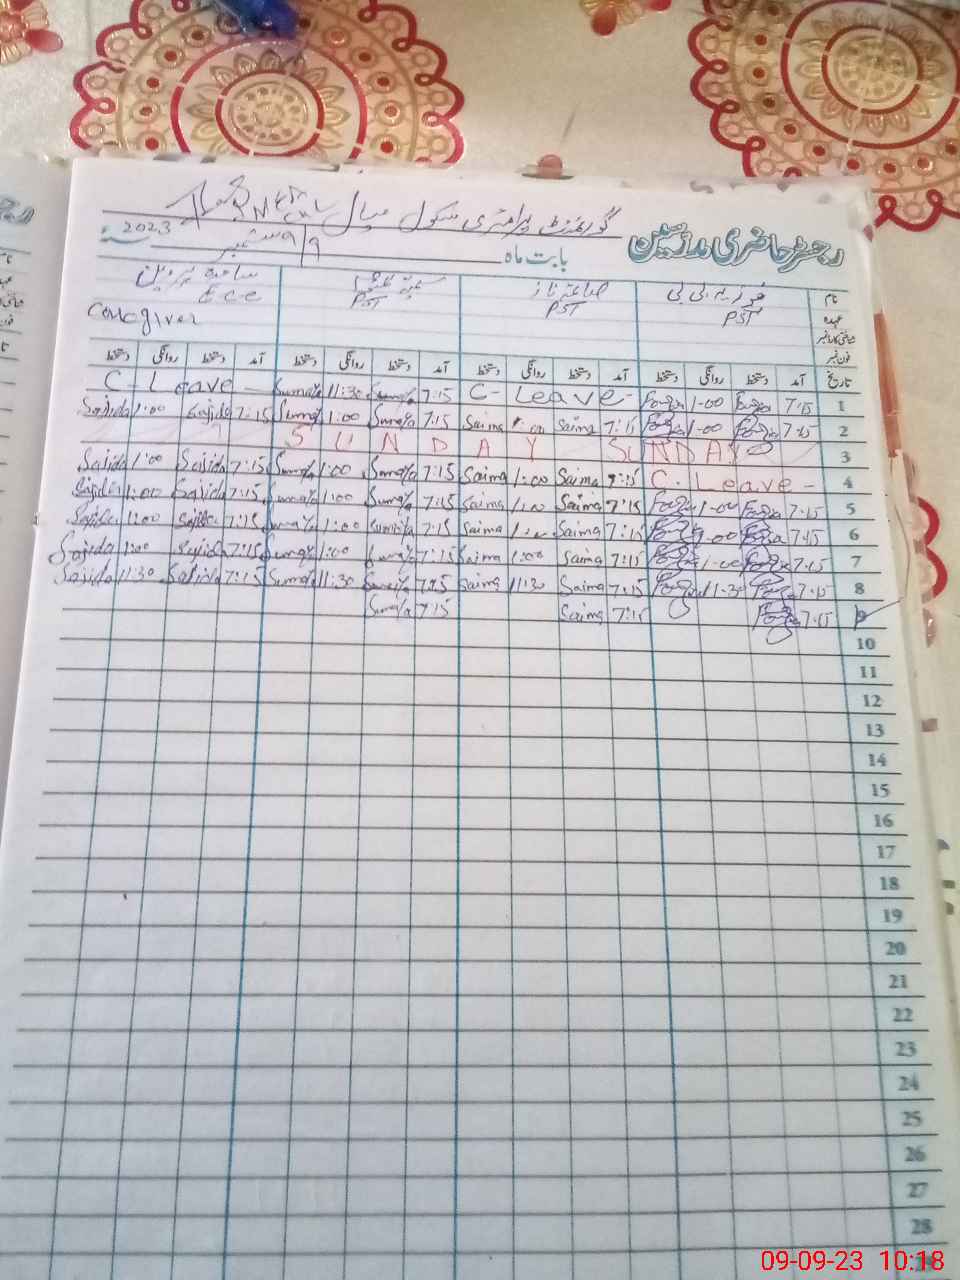 رجسٹر حاضری مدرسین گورنمنٹ پرائمری سکول
بابت ماہ 9/ ستمبر 2023
نام فوزیہ بی بی صائمہ ناز ساجدہ پروین
عہدہ PST PST PST E c e
caregiver
فون نمبر
تاریخ آمد دستخط روانگی دستخط آمد دستخط روانگی دستخط آمد دستخط روانگی دستخط آمد دستخط روانگی دستخط
1 7:15 Fozia 1-00 Fozia C- Leave- 7:15 Sumaya 11:30 Sumaya C-Leave
2 7:15 Fozia 1-00 Fozia 7:15 Saima 1:00 Saima 7:15 Sumaya 1:00 Sumaya 7:15 Sajida 1:00 Sajida
3 SUNDAY SUNDAY
4 C. Leave - 7:15 Saima 1:00 Saima 7:15 Sumaya 1:00 Sumaya 7:15 Sajida 1:00 Sajida
5 7:15 Fozia 1-00 Fozia 7:15 Saima 1:00 Saima 7:15 Sumaya 1:00 Sumaya 7:15 Sajida 1:00 Sajida
6 7:15 Fozia 1-00 Fozia 7:15 Saima 1:00 Saima 7:15 Sumaya 1:00 Sumaya 7:15 Sajida 1:00 Sajida
7 7:15 Fozia 1-00 Fozia 7:15 Saima 1:00 Saima 7:15 Sumaya 1:00 Sumaya 7:15 Sajida 1:00 Sajida
8 7:15 Fozia 11-30 Fozia 7:15 Saima 11:30 Saima 7:15 Sumaya 11:30 Sumaya 7:15 Sajida 11:30 Sajida
9 7:15 Fozia 7:15 Saima 7:15 Sumaya
10
11
12
13
14
15
16
17
18
19
20
21
22
23
24
25
26
27
28
09-09-23 10:18